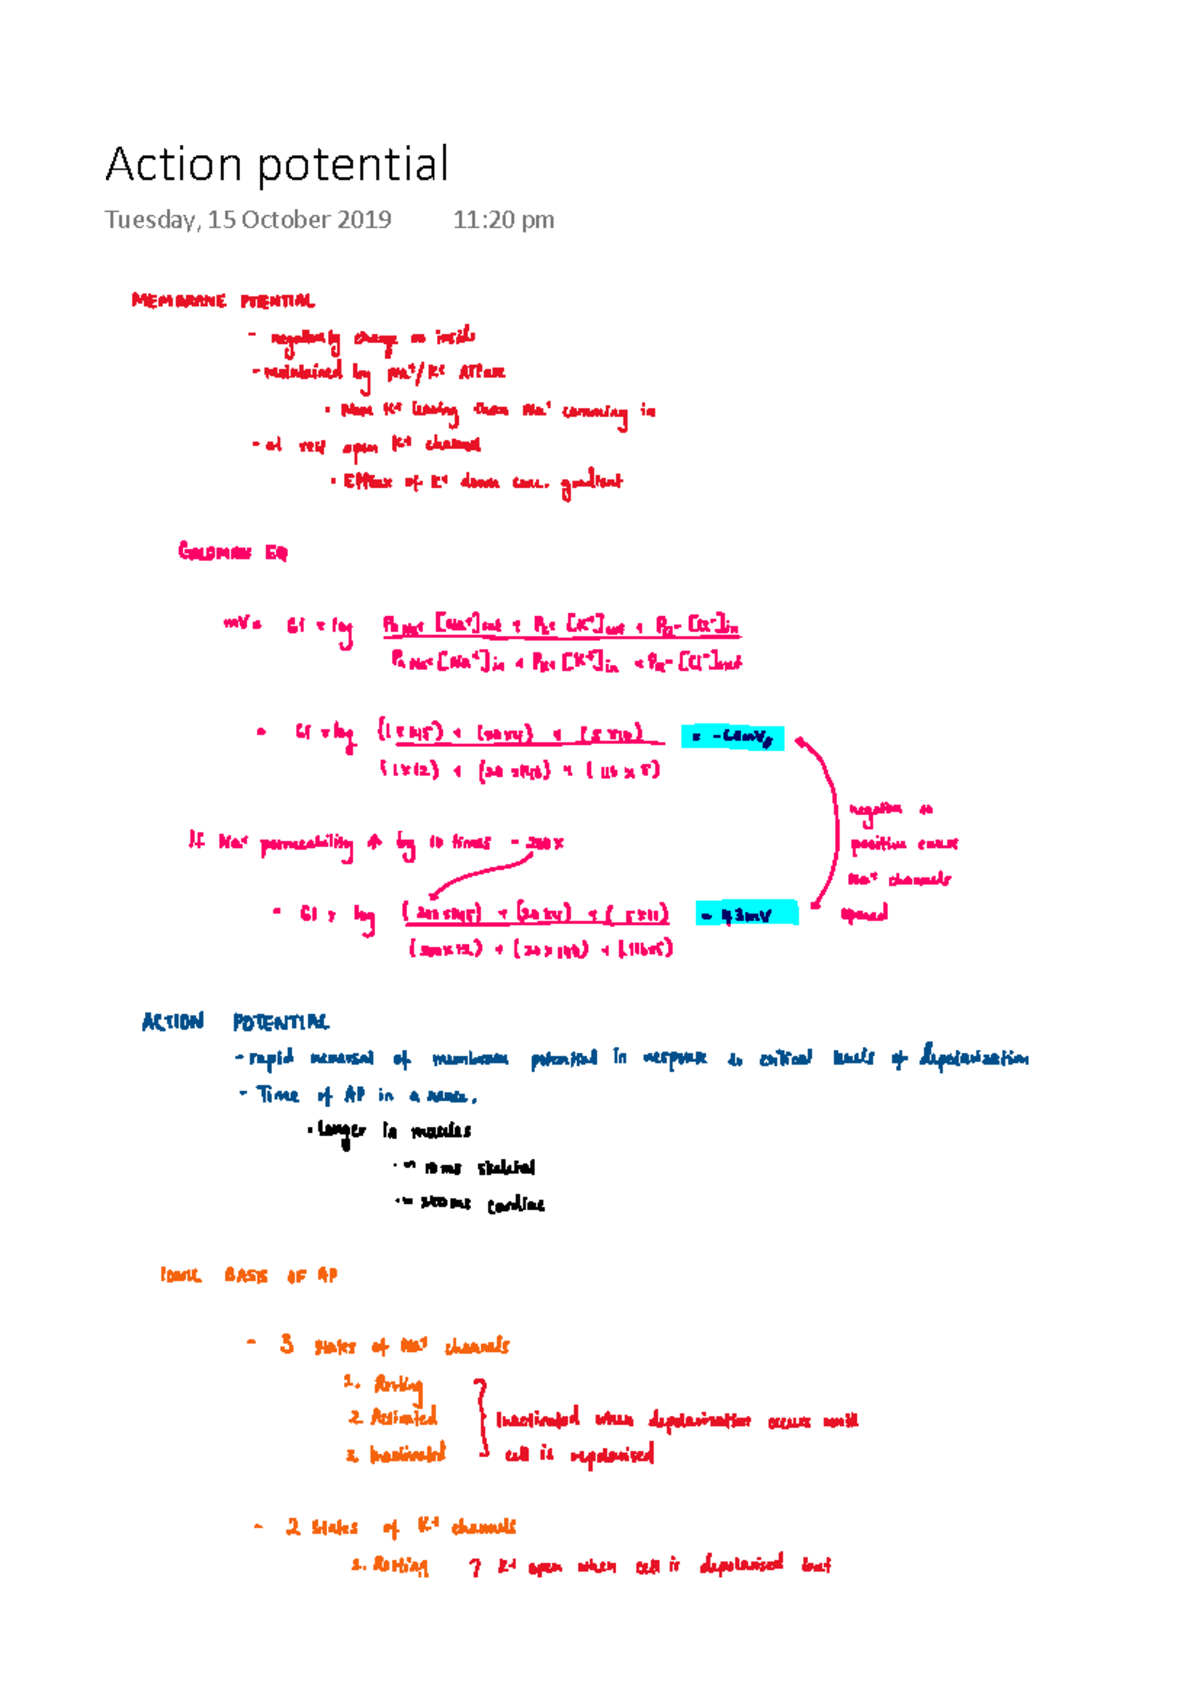 Action potential
Tuesday, 15 October 2019 11:20 pm
MEMBRANE POTENTIAL
- negatively charge on inside
- maintained by Na+/K+ ATPase
• More K+ leaving than Na+ comming in
- at rest open K+ channel
• Efflux of K+ down conc. gradient
GOLDMAN EQ
mV = 61 × log
PNa+ [Na+]out + PK+ [K+]out + PCl- [Cl-]in
PNa+ [Na+]in + PK+ [K+]in + PCl- [Cl-]out
= 61 × log (1 × 145) + (20 × 4) + (5 × 10) = -68mV
(1 × 12) + (20 × 140) + (116 × 5)
negative to
positive cause
Na+ channels
opened
If Na+ permeability ↑ by 10 times - 200x
= 61 × log (200 × 145) + (20 × 4) + (5 × 11) = 43mV
(200 × 12) + (20 × 140) + (116 × 5)
ACTION POTENTIAL
- rapid reversal of membrane potential in response to critical levels of depolarization
- Time of AP in a
• Longer in muscles
• ~ 10ms skeletal
• ~ 200ms cardiac
IONIC BASIS OF AP
- 3 states of Na+ channels
1. Resting
2. Activated
3. Inactivated
Inactivated when depolarization occurs until
cell is repolarised
- 2 states of K+ channels
1. Resting K+ open when cell is depolarised but